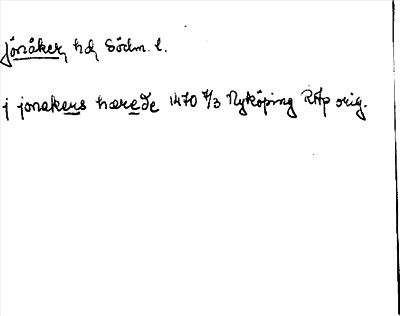 Jönåker, hd, Södm. l.
j jonakers hærede 1470 7/3 Nyköping RAp orig.